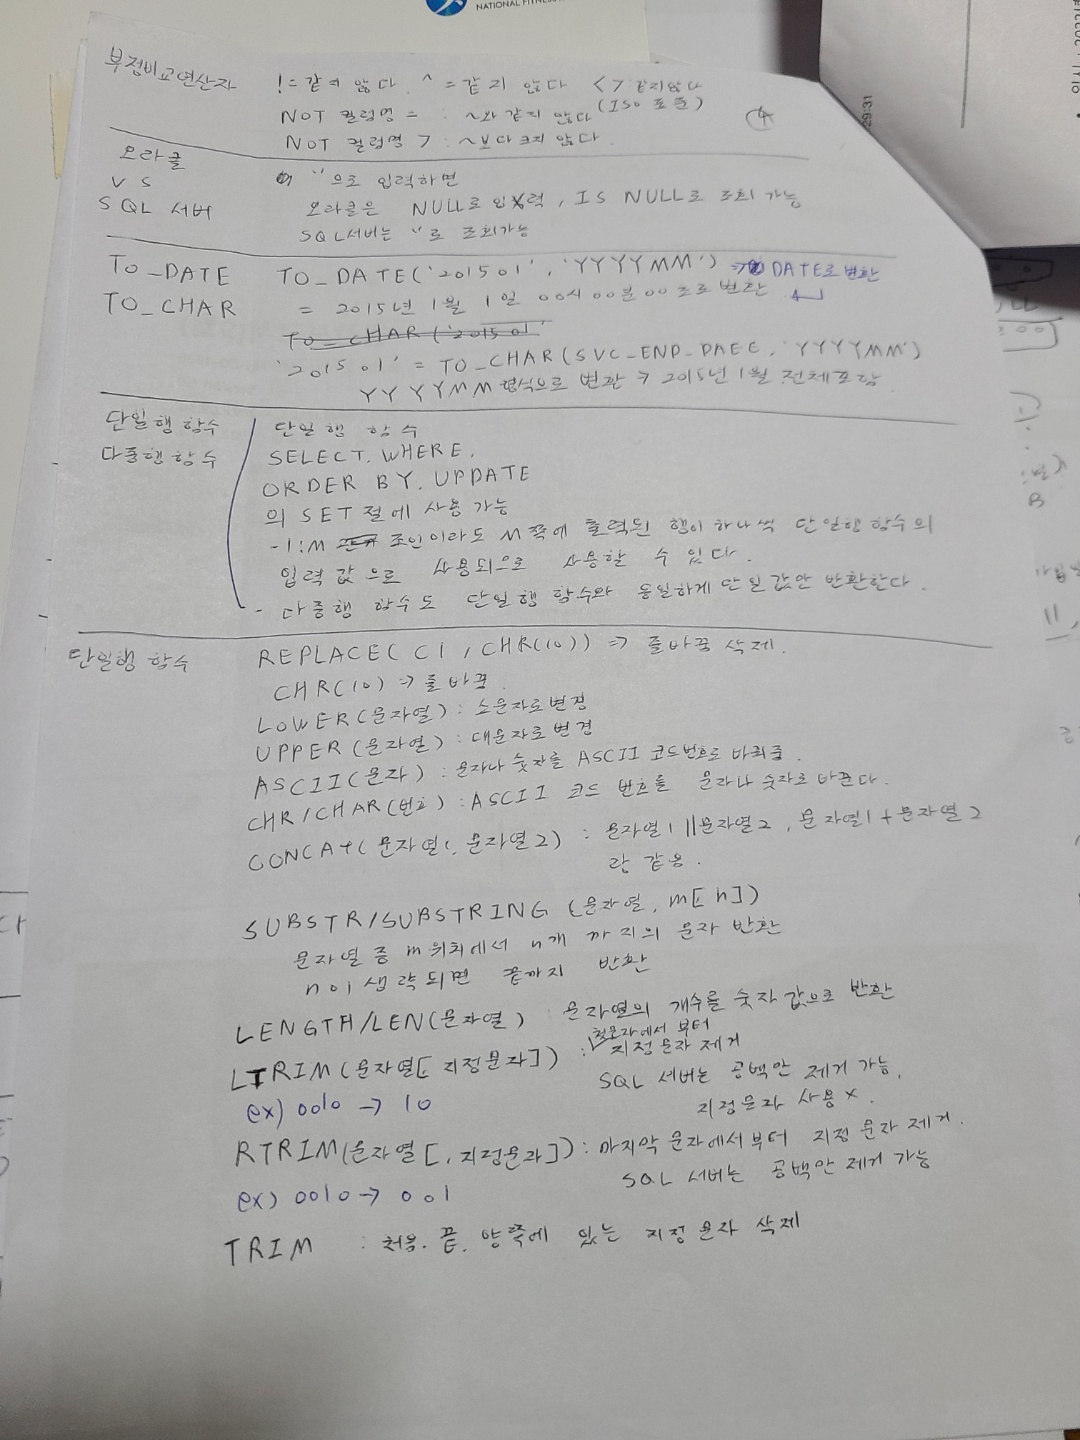 NATIONAL FITNESS
부정비교연산자
!=같지 않다. ^=같지 않다 <>:같지않다
(ISO 표준)
NOT 컬럼명 = : ~와 같지 않다
④
NOT 컬럼명 > : ~보다 크지 않다.
오라클
VS
SQL 서버
''으로 입력하면
오라클은 NULL로 입력, IS NULL로 조회 가능
SQL서버는 ''로 조회가능
TO_DATE
TO_CHAR
TO_DATE('201501', 'YYYYMM') → DATE로 변환
= 2015년 1월 1일 00시 00분 00초로 변환
TO_CHAR('201501'
'201501' = TO_CHAR(SVC_END_DAEE, 'YYYYMM')
YYYYMM 형식으로 변환 → 2015년 1월 전체포함
단일행 함수
다중행 함수
단일행 함수
SELECT. WHERE.
ORDER BY. UPDATE
의 SET 절에 사용 가능
-1:M 조인이라도 M쪽에 출력된 행이 하나씩 단일행 함수의
입력값으로 사용되므로 사용할 수 있다.
- 다중행 함수도 단일행 함수와 동일하게 단일값만 반환한다.
단일행 함수
REPLACE(C1, CHR(10)) => 줄바꿈 삭제.
CHR(10) → 줄바꿈.
LOWER(문자열) : 소문자로변경
UPPER(문자열) : 대문자로 변경
ASCII(문자) : 문자나 숫자를 ASCII 코드번호로 바꿔줌.
CHR/CHAR(번호) : ASCII 코드 번호를 문자나 숫자로 바꾼다.
CONCAT(문자열1, 문자열2) : 문자열1 || 문자열2, 문자열1 + 문자열2
랑 같음.
SUBSTR/SUBSTRING (문자열, m[n])
문자열 중 m위치에서 n개 까지의 문자 반환
n이 생략되면 끝까지 반환
LENGTH/LEN(문자열) : 문자열의 개수를 숫자값으로 반환
첫문자에서 부터
LTRIM(문자열[, 지정문자]) : 지정 문자 제거
SQL 서버는 공백만 제거 가능,
ex) 0010 → 10
지정문자 사용 X.
RTRIM(문자열[, 지정문자]) : 마지막 문자에서부터 지정 문자 제거.
SQL 서버는 공백만 제거 가능
ex) 0010 → 001
TRIM : 처음. 끝. 양쪽에 있는 지정 문자 삭제